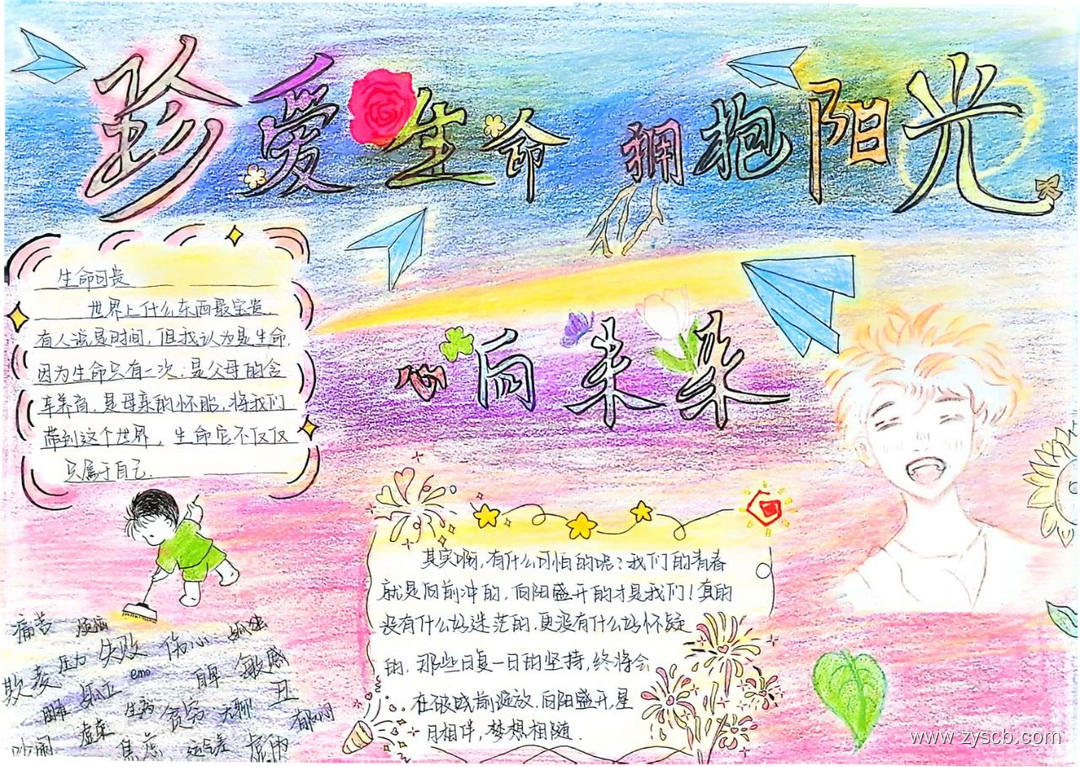 珍爱生命 拥抱阳光
心向未来
生命可贵
世界上什么东西最宝贵,
有人说是时间,但我认为是生命,
因为生命只有一次.是父母的含
辛养育,是母亲的怀胎,将我们
带到这个世界,生命它不仅仅
只属于自己.
其实啊,有什么可怕的呢?我们的青春
就是向前冲的,向阳盛开的才是我们!真的
没有什么好迷茫的,更没有什么好怀疑
的,那些日复一日的坚持,终将会
在破晓前绽放,向阳盛开,星
月相伴,梦想相随.
痛苦 烦恼 失败 伤心 孤独
欺凌 压力 emo 自卑 敏感
困难 孤立 生病 贫穷 无聊 丑
吵闹 虚荣 焦虑 郁闷
www.zyscb.com